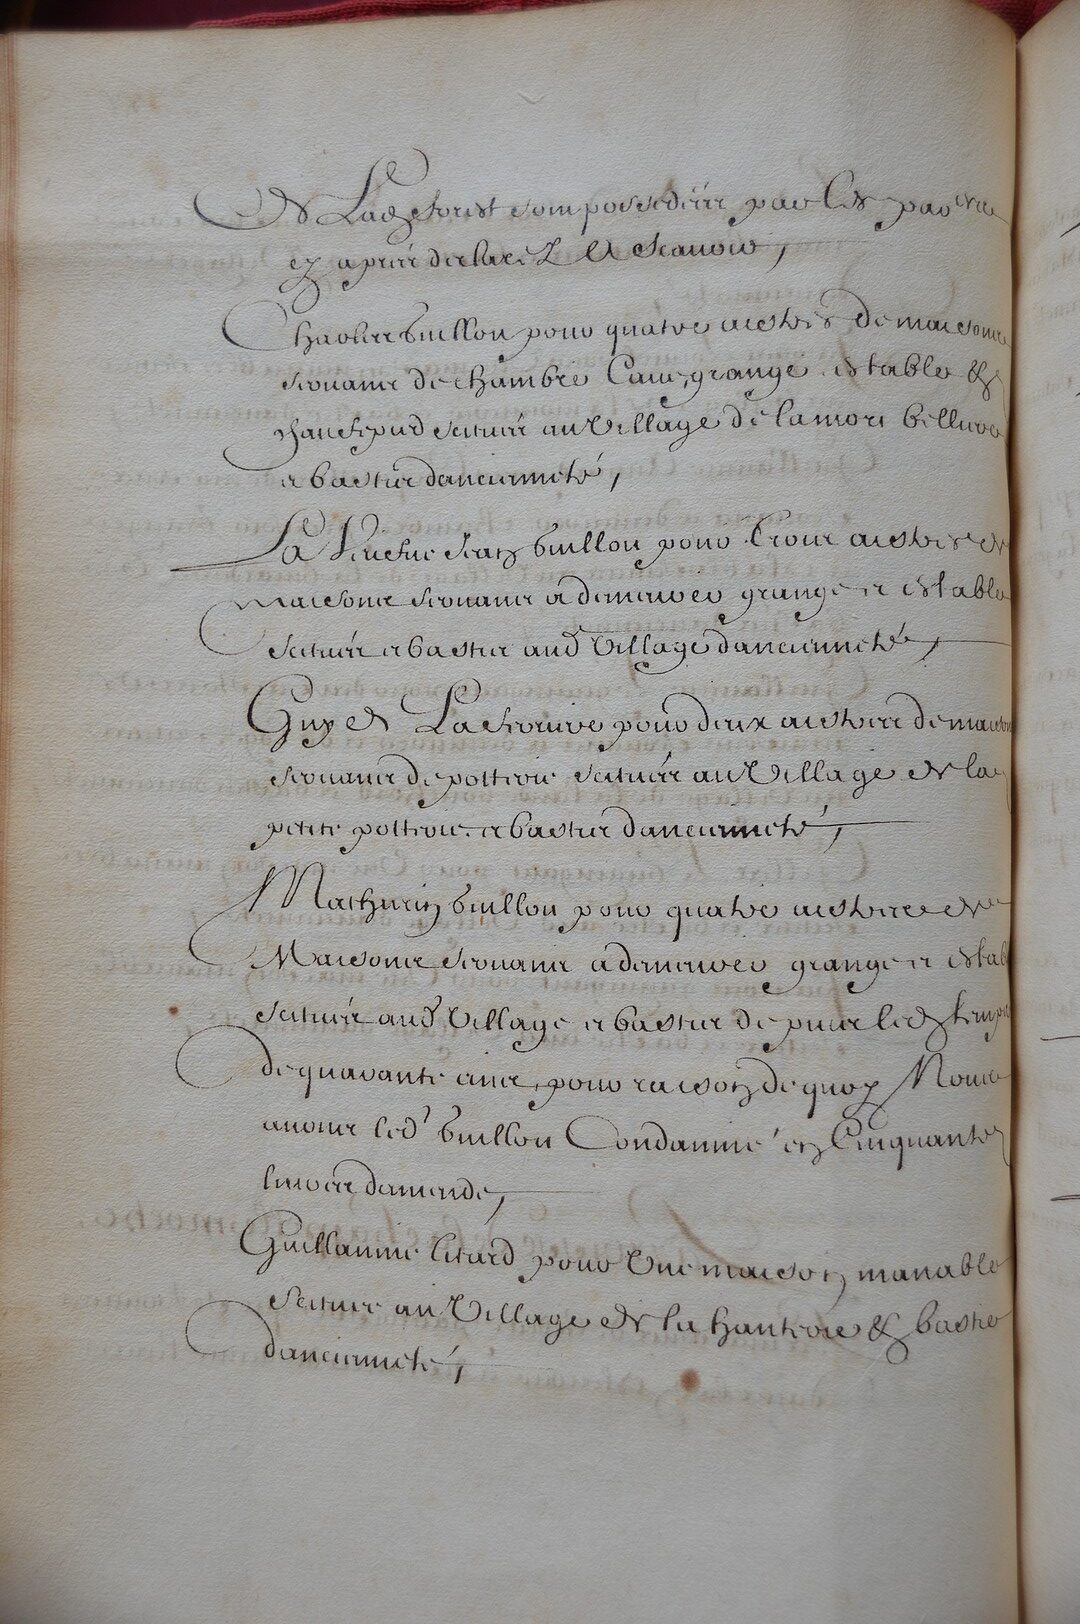 de Lad forest sont possedées par les par
cy apres declarez A Scavoir,
Charles buillon pour quatre aistres de maisons
servans de chambre Cave, grange estable &
situés au Village de la mort
et bastis dancienneté,
La Veufve Jean buillon pour trois aistres de
maisons servans a demeurer grange et estable
situés et bastis aud Village dancienneté,
Guy de La pour deux aistres de maisons
servans de potterie situés au Village de la
petite potterie et bastis dancienneté,
Mathurin buillon pour quatre aistres de
Maisons servans a demeurer grange et estable
situés aud Village et bastis depuis led temps
de quarante ans, pour raison de quoy Nous
avons led buillon Condamné en Cinquante
livres damende,
Guillaume litard pour Une maison manable
située au Village de la & bastie
dancienneté,